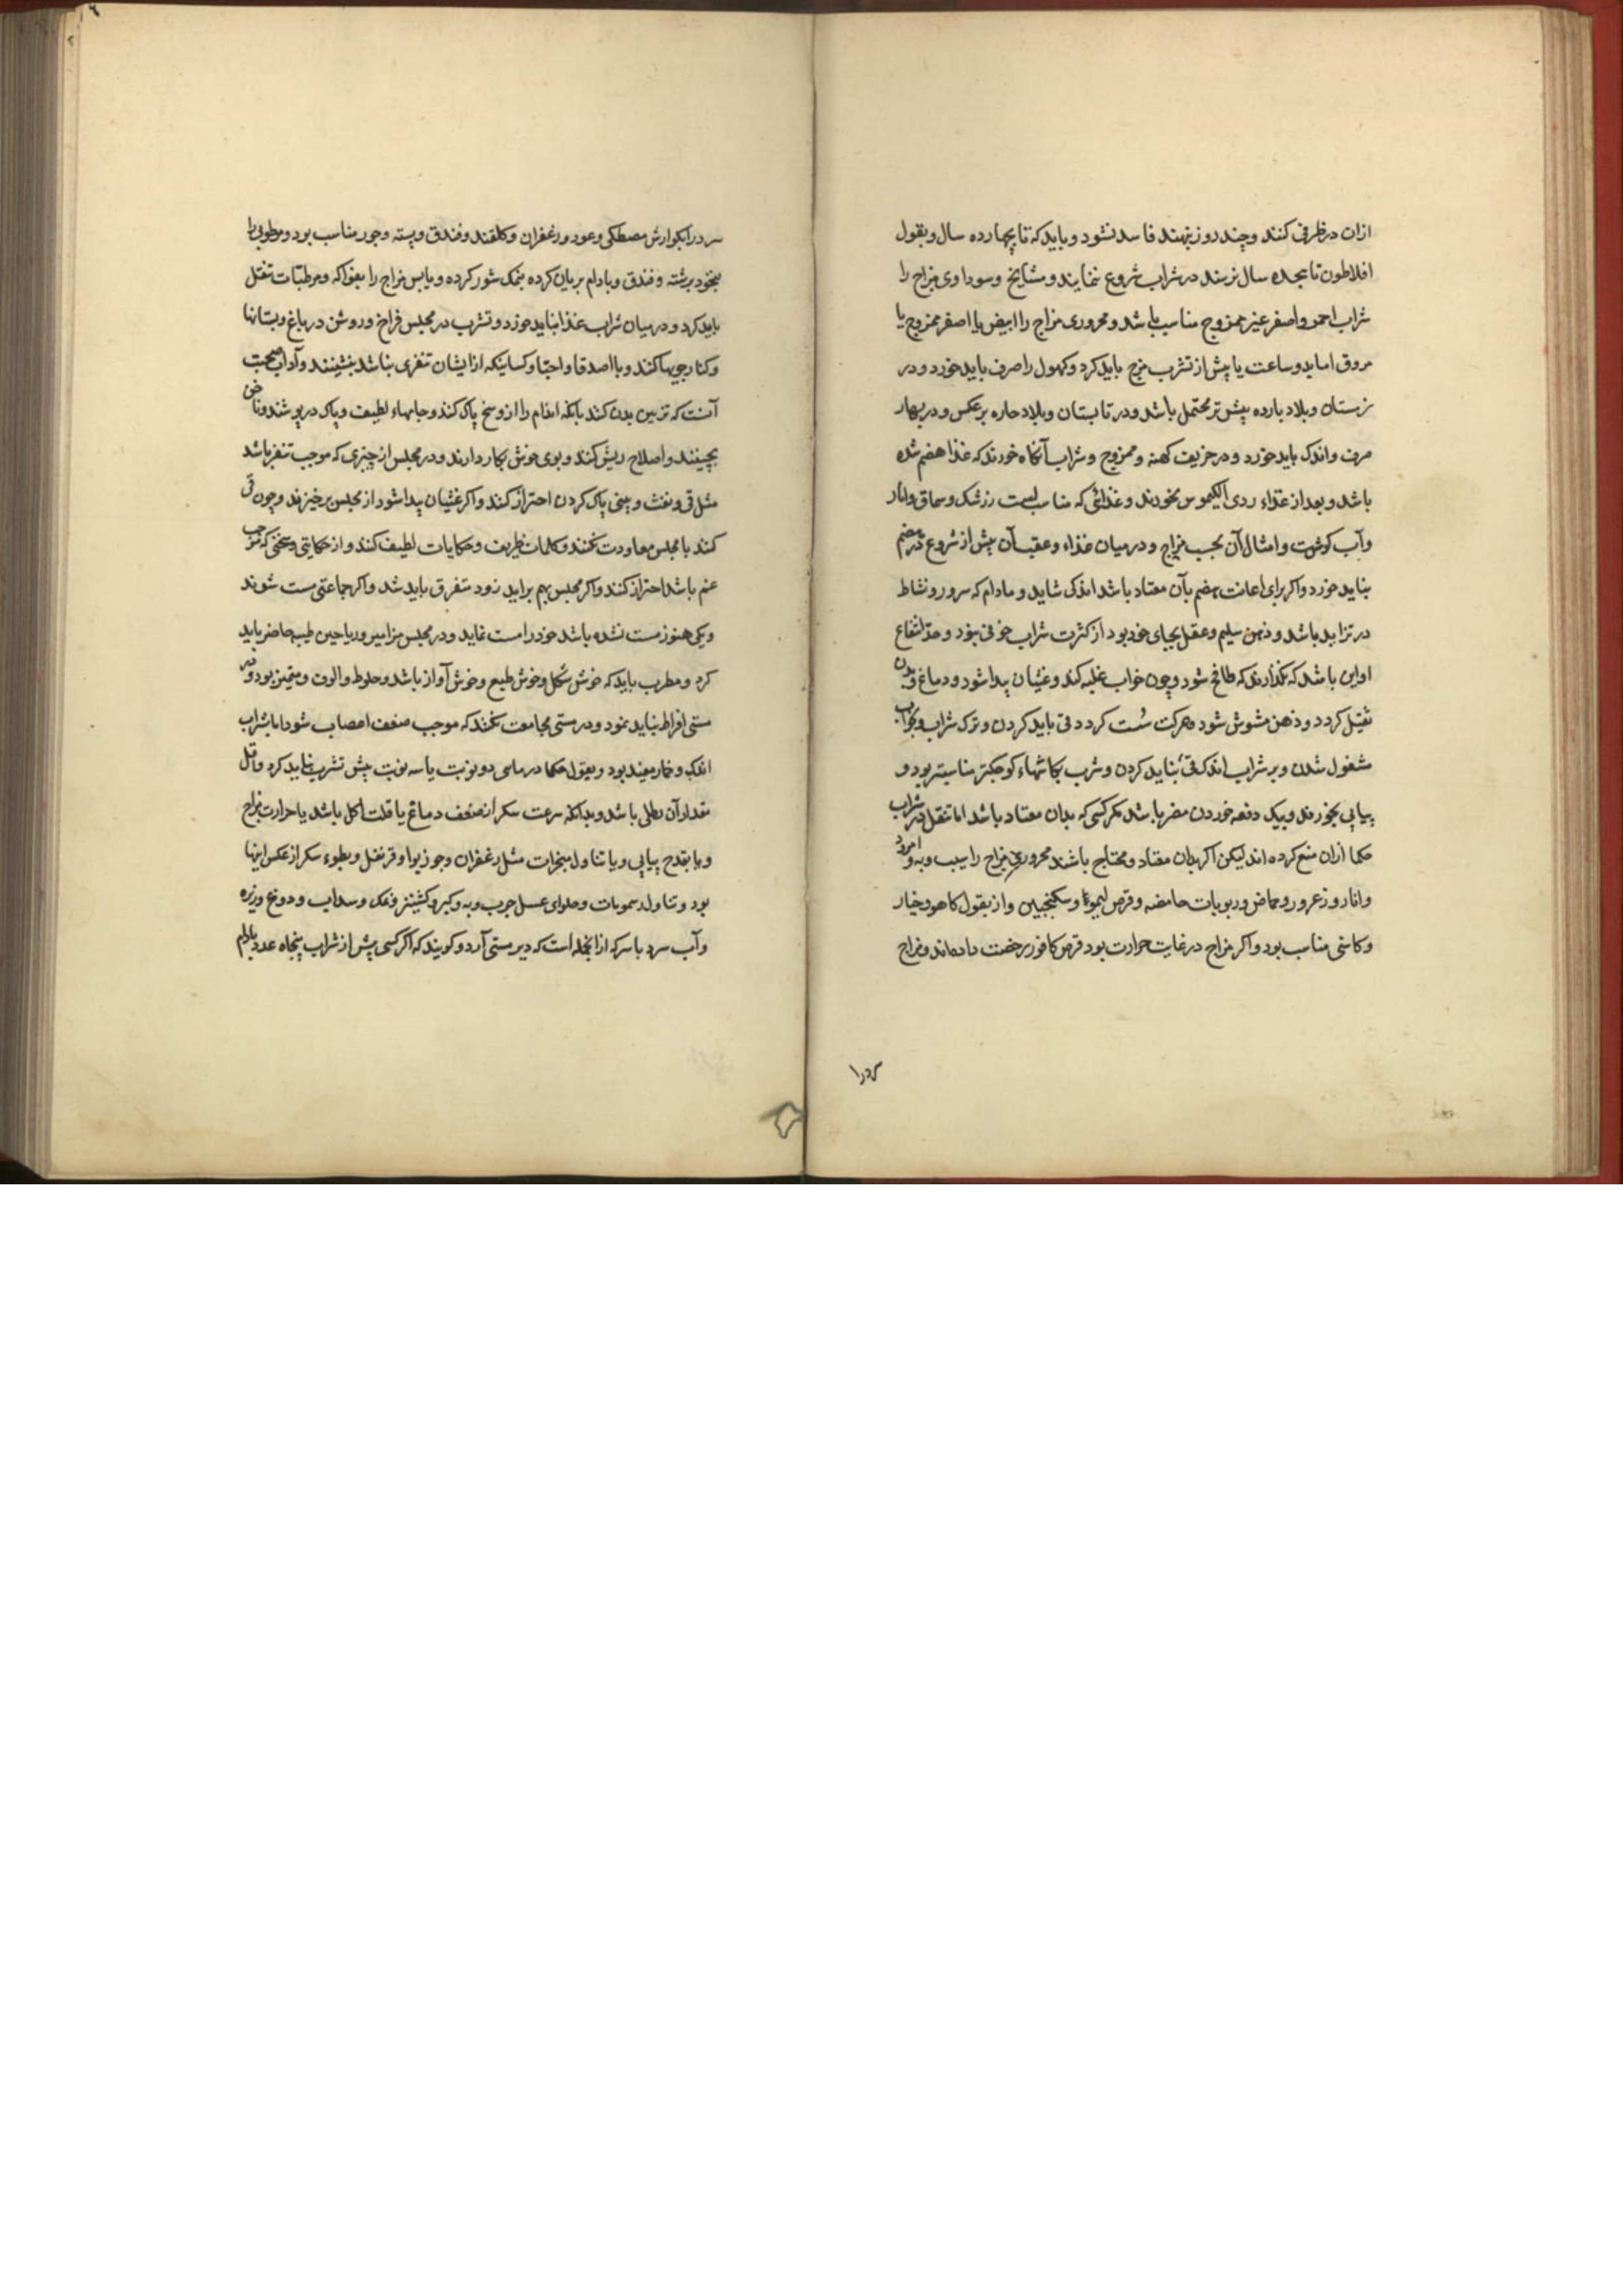 ازان در ظرفی کنند و چند روز بنهند فاسد نشود و باید که تا بچهارده سال و بقول
افلاطون تا بهجده سال نرسند در شراب شروع ننمایند و مشایخ و سوداوی مزاج را
شراب احمر و اصفر غیر ممزوج مناسب باشد و محروری مزاج را ابیض یا اصفر ممزوج یا
مروق اما بدو ساعت یا پیش از تشرب مزج باید کرد و کهول را صرف باید خورد و در
زمستان و بلاد بارده بیش‌تر محتمل باشد و در تابستان و بلاد حاره برعکس و در بهار
صرف و اندک باید خورد و در خریف کهنه و ممزوج و شراب آنکاه خورند که غذا هضم شده
باشد و بعد از غذاء ردی الکیموس نخورند و غذائی که مناسبست زرشک و سماق و انار
و آب کوشت و امثال آن بحسب مزاج و در میان غذاء و عقب آن پیش از شروع در هضم
نباید خورد و اکر برای اعانت هضم بآن معتاد باشد اندک شاید و مادام که سرور و نشاط
در تزاید باشد و ذهن سلیم و عقل بجای خود بود از کثرت شراب خوفی نبود و حد انتفاع
او این باشد که نکذارند که طافح شود و چون خواب غلبه کند و غثیان پیدا شود و دماغ و بدن
ثقیل کردد و ذهن مشوش شود و حرکت سست کردد قی باید کردن و ترک شراب و بخواب
مشغول شدن و بر شراب اندک قی نباید کردن و شرب بکاسهاء کوچکتر مناسبتر بود و
پیاپی نخورند و بیک دفعه خوردن مضر باشد مکر کسی که بدان معتاد باشد اما تنقل در شراب
حکما ازان منع کرده اند لیکن اکر بدان معتاد و محتاج باشند محروری مزاج را سیب و به و امرود
و انار و زعرور و حماض و ربوبات حامضه و قرص لیمو و سکنجبین و از بقول کاهو و خیار
و کاسنی مناسب بود و اکر مزاج در غایت حرارت بود قرص کافور رخصت داده‌اند و مزاج
سرد را
سرد را بکوارش مصطکی و عود و زعفران و کلقند و فندق و پسته و جوز مناسب بود و مرطوبی را
بنخود برشته و فندق و بادام بریان کرده بنمک شور کرده و یابس مزاج را بفواکه و مرطبات تنقل
باید کرد و در میان شراب غذا نباید خورد و تشرب در مجلس فراخ و روشن در باغ و بستانها
و کنار جویها کنند و با اصدقا و احبا و کسانیکه از ایشان تنفری نباشد بنشینند و آداب صحبت
آنست که تزیین بدن کنند بانکه اندام را از وسخ پاک کنند و جامهاء لطیف و پاک در پوشند و ناخن
بچینند و اصلاح ریش کنند و بوی خوش بکار دارند و در مجلس از چیزی که موجب تنفر باشد
مثل قی و نفث و بینی پاک کردن احتراز کنند و اکر غثیان پیدا شود از مجلس برخیزند و چون قی
کنند با مجلس معاودت نکنند و کلمات ظریف و حکایات لطیف کنند و از حکایتی و سخنی که موجب
غم باشد احتراز کنند و اکر مجلس بهم براید زود متفرق باید شد و اکر جماعتی مست شوند
و یکی هنوز مست نشده باشد خود را مست نماید و در مجلس مزامیر و ریاحین طیبه حاضر باید
کرد و مطرب باید که خوش شکل و خوش طبع و خوش آواز باشد و خلوط و الوف و متمیز بود و در
مستی افراط نباید نمود و در مستی مجامعت نکنند که موجب ضعف اعصاب شود اما شراب
اندک و خمار مفید بود و بقول حکما در ماهی دو نوبت یا سه نوبت بیش تشرب نباید کرد و اقل
مقدار آن رطلی باشد و بدانکه سرعت سکر از ضعف دماغ یا قلت اکل باشد یا حرارت مزاج
و یا بقدح پیاپی و یا تناول مبخرات مثل زعفران و جوز بوا و قرنفل و بطوء سکر از عکس اینها
بود و تناول دسومات و حلوای عسل چرب و به و کبر و کشنیز و نمک و سداب و دوغ و زیره
و آب سرد با سرکه از انجمله است که دیر مستی آرد و کویند که اکر کسی پیش از شراب پنجاه عدد بادام